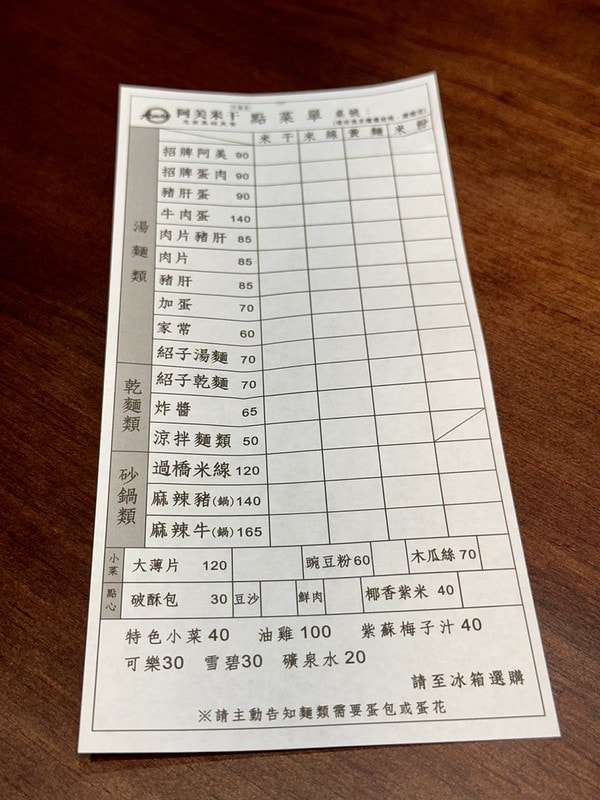 阿美米干 點菜單 桌號：
米干 米線 黃麵 米粉
湯麵類
招牌阿美 90
招牌蛋肉 90
豬肝蛋 90
牛肉蛋 140
肉片豬肝 85
肉片 85
豬肝 85
加蛋 70
家常 60
紹子湯麵 70
乾麵類
紹子乾麵 70
炸醬 65
涼拌麵類 50
砂鍋類
過橋米線 120
麻辣豬(鍋) 140
麻辣牛(鍋) 165
小菜 大薄片 120 豌豆粉 60 木瓜絲 70
點心 破酥包 30 豆沙 鮮肉 椰香紫米 40
特色小菜 40 油雞 100 紫蘇梅子汁 40
可樂30 雪碧30 礦泉水 20
請至冰箱選購
※請主動告知麵類需要蛋包或蛋花